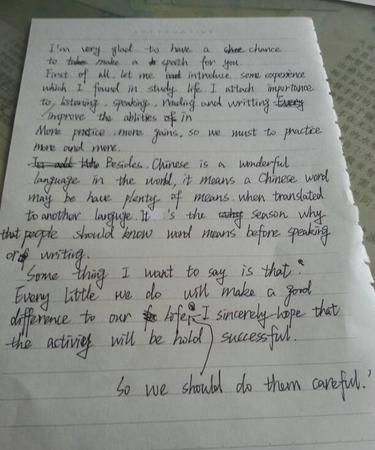 I'm very glad to have a chance
to make a speech for you.
First of all, let me introduce some experience
which I found in study life. I attach importance
to listening, speaking, reading and writting Every
improve the ablities of in
More practice, more gains, so we must to practice
more and more.
Besides, Chinese is a wonderful
language in the world, it means a Chinese word
may be have plenty of means when translated
to another languge. It 's the season why
that people should know word means before speaking
or writing.
Some thing I want to say is that "
Every little we do will make a good
difference to our life. I sincerely hope that
the activity will be hold successful.
So we should do them careful."